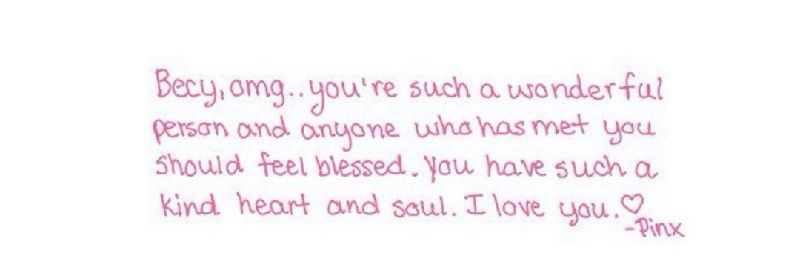 Becy, omg.. you're such a wonderful
person and anyone who has met you
should feel blessed. You have such a
kind heart and soul. I love you.♡
-Pinx